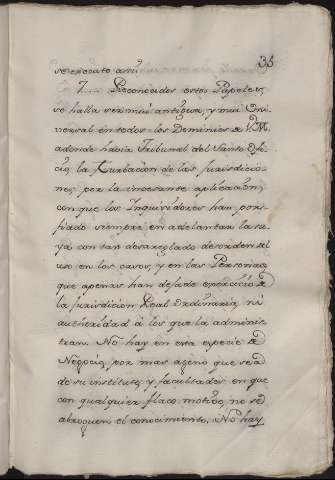 35
se execute assi.
7.... Reconocidos estos Papeles,
se halla ser mui antigua, y mui Uni
versal en todos los Dominios de V.M.
adonde havia Tribunal del Santo Ofi
cio, la turbacion de las Jurisdicio
nes por la incesante aplicacion,
con que los Inquisidores han porf
fiado siempre en adelantar la su
ya con tan desarreglado desorden del
uso en los casos, y en las Personas,
que apenas han dejado exercicio a
la Jurisdicion Real Ordinaria, ni
authoridad à los que la adminis
tran. No hay en esta especie de
Negocio, por mas ageno que sea
de su instituto, y facultades en que
con qualquier flaco motivo, no se
abroguen el conocimiento. No hay